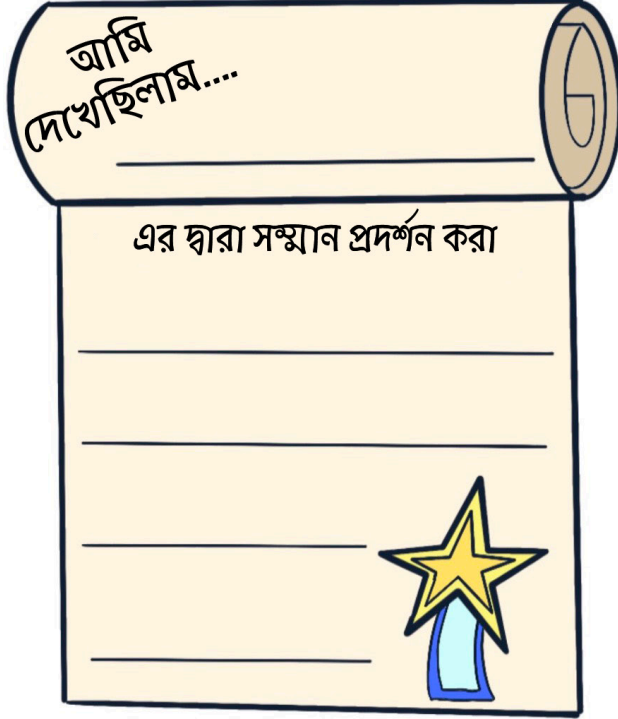 আমি
দেখেছিলাম....
এর দ্বারা সম্মান প্রদর্শন করা